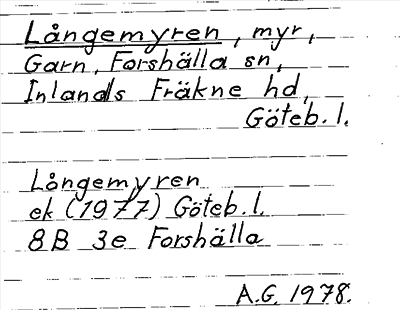 Långemyren, myr,
Garn, Forshälla sn,
Inlands Fräkne hd,
Göteb. l.
Långemyren
ek (1977) Göteb. l.
8B 3e Forshälla
A.G. 1978.